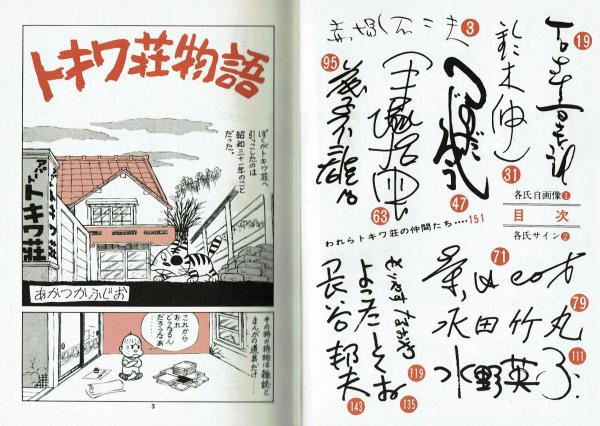 トキワ荘物語
ぼくがトキワ荘へ
引っこしたのは
昭和三十一年のこと
だった。
アパート
トキワ荘
トキワ荘
あかつかふじお
その時の持物は雑誌と
まんがの道具だけ…
これから
おれ
どうなるん
だろうなあ
3
赤塚不二夫
3
鈴木伸一
31
石森章太郎
19
95
63
つのだじろう
47
各氏自画像1
目次
各氏サイン2
われらトキワ荘の仲間たち‥‥151
71
永田竹丸
79
水野英子
111
119
よこたとくお
135
長谷邦夫
143